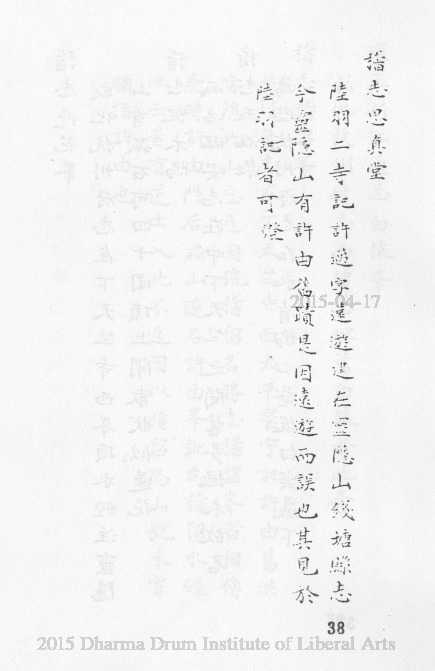 誌志思真堂
陸羽二寺記許邁字遠遊建在靈隐山錢塘縣志
今靈隐山有許由舊蹟是因遠遊而誤也其見於
陸羽記者可證
2015-04-17
38
2015 Dharma Drum Institute of Liberal Arts